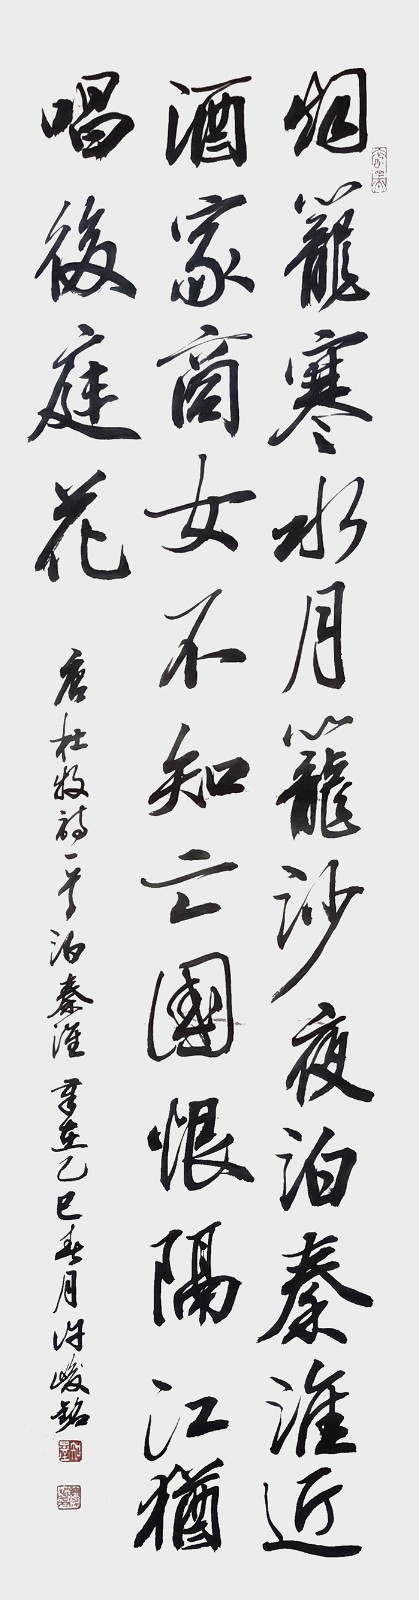 烟籠寒水月籠沙夜泊秦淮近
酒家商女不知亡國恨隔江猶
唱後庭花
唐杜牧詩一首泊秦淮 歲在乙巳春月許峻銘